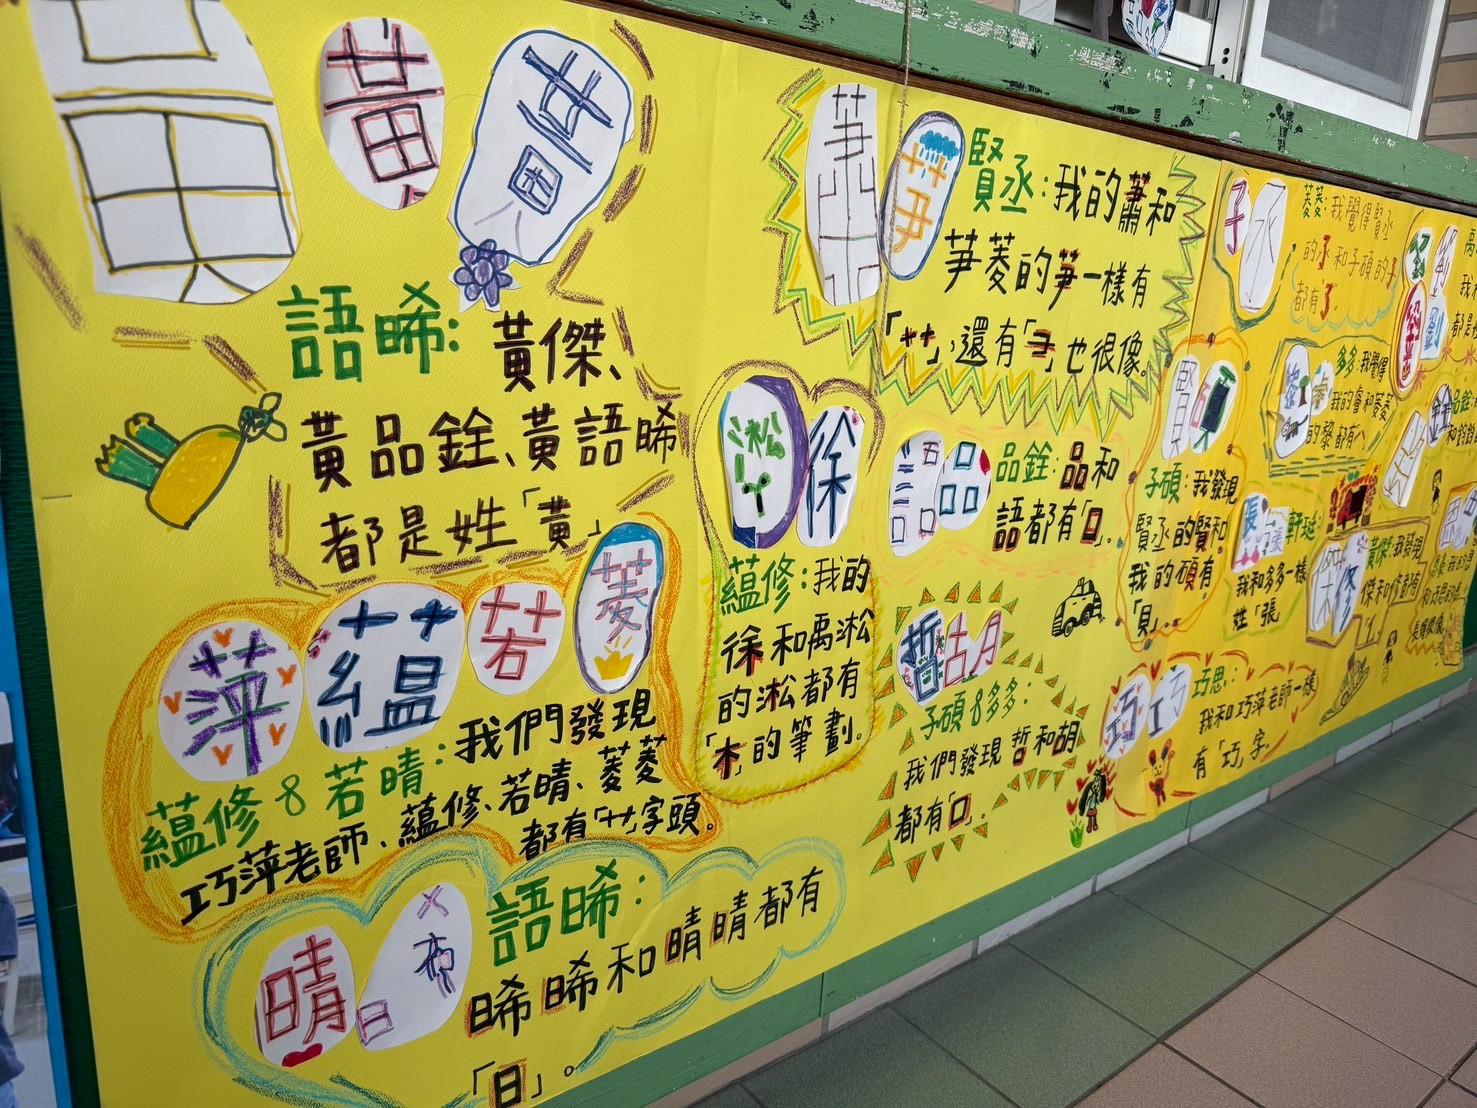 黃
黃
語晞：黃傑、
黃品銓、黃語晞
都是姓「黃」
萍 蘊 若 菱
蘊修&若晴：我們發現
巧萍老師、蘊修、若晴、菱菱
都有「艹」字頭。
晴
語晞：
晞晞和晴晴都有
「日」。
賢丞：我的蕭和
芛菱的芛一樣有
「艹」，還有「彐」也很像。
淞 徐
蘊修：我的
徐和禹淞
的淞都有
「木」的筆劃。
語 品
品銓：品和
語都有「口」.
哲 胡
子碩&多多：
我們發現 哲和胡
都有「口」.
子 丞
菱菱：我覺得賢丞
的丞和子碩的子
都有了.
賢 碩
子碩：我發現
賢丞的賢和
我的碩有
「貝」.
黎 睿
多多：我覺得
我的睿和菱菱
的黎都有八
張 張
軒珽：
我和多多一樣
姓「張」
傑 修
黃傑：我發現
傑和修都有
「亻」.
巧 巧
巧思：
我和巧萍老師一樣
有「巧」字.
劉 劉
梁 劉